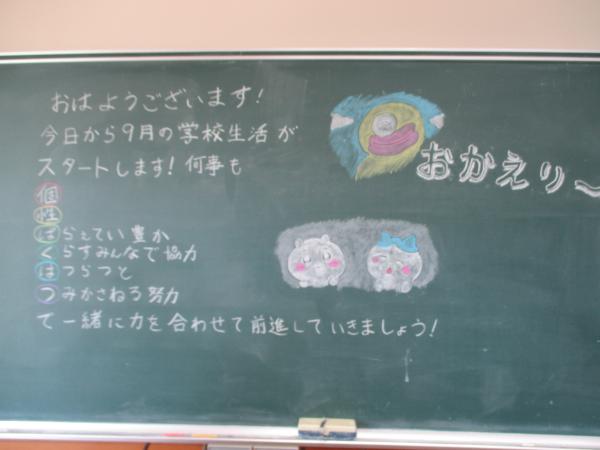 おはようございます!
今日から9月の学校生活が
スタートします!何事も
個
性
ばらえてい豊か
くらすみんなで協力
はつらつと
つみかさねる努力
で一緒に力を合わせて前進していきましょう!
おかえり〜